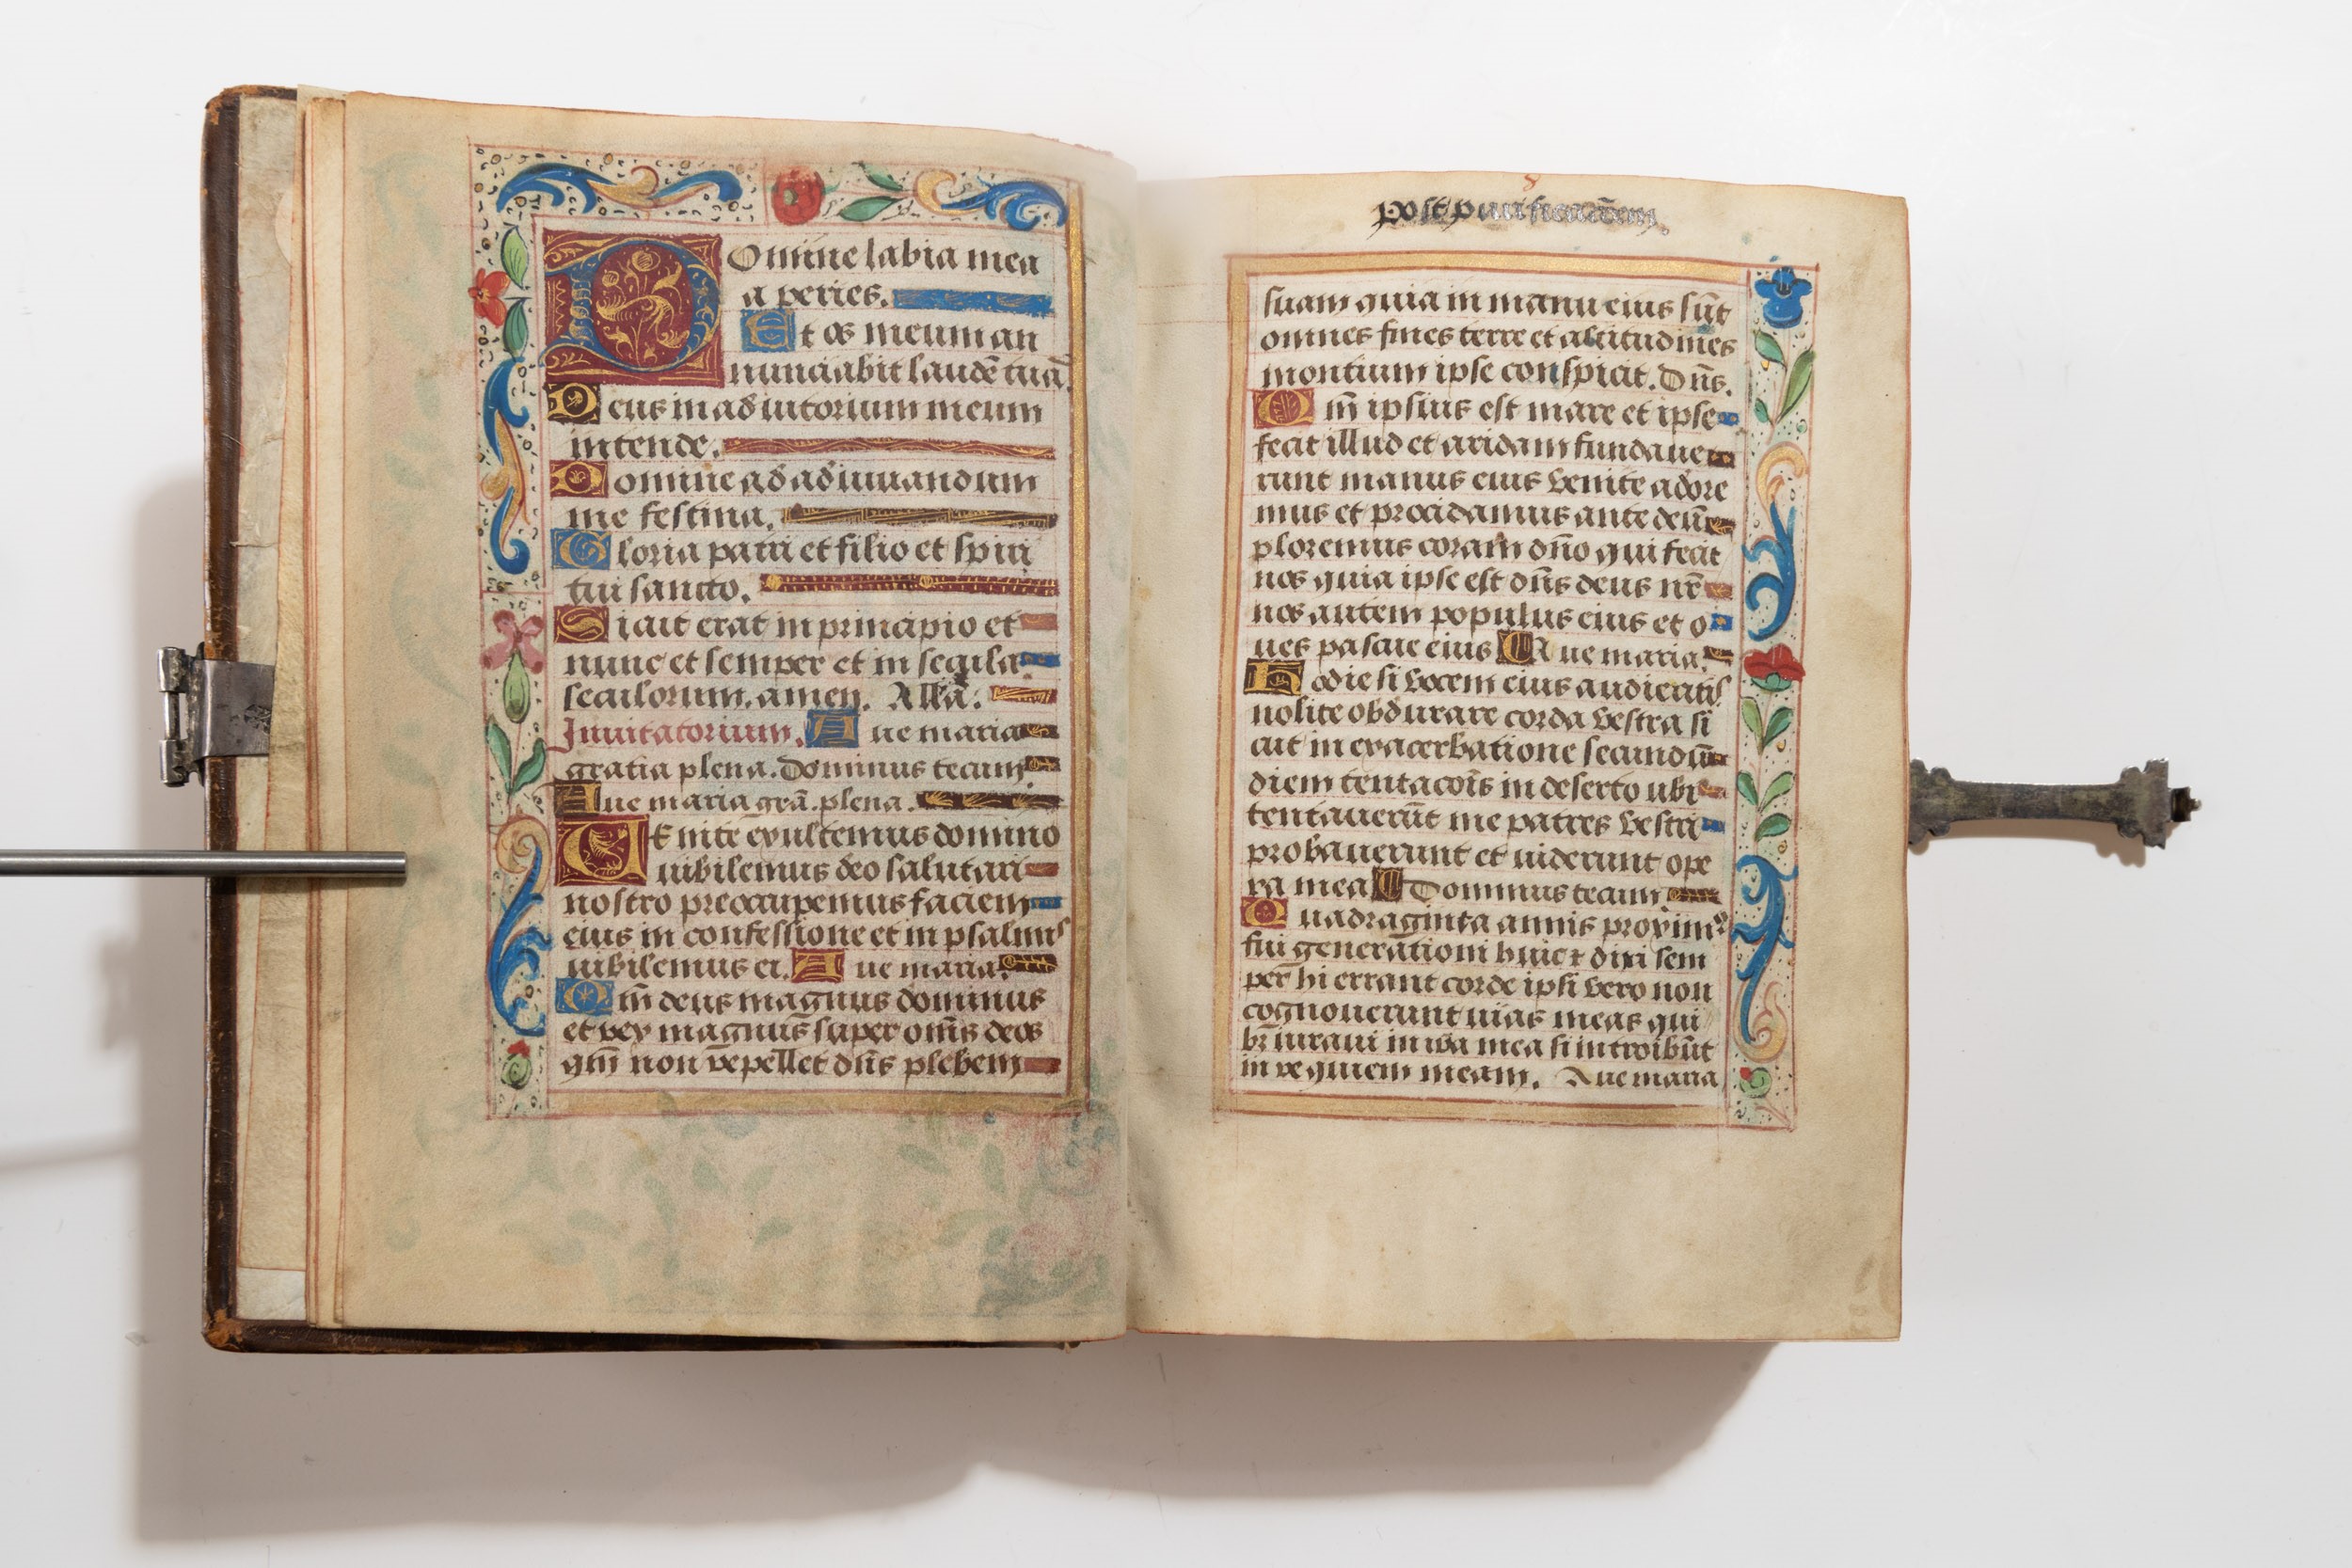 Domine labia mea
aperies.
Et os meum an
nunciabit laudē tuā
Deus in adiutorium meum
intende.
Domine ad adiuuandum
me festina.
Gloria patri et filio et spiri
tui sancto.
Sicut erat in principio et
nunc et semper et in secula
seculorum. amen. Allā.
Inuitatorium. Aue maria
gratia plena. Dominus tecum
Aue maria grā. plena.
Uenite exultemus domino
iubilemus deo salutari
nostro preoccupemus faciem
eius in confessione et in psalmis
iubilemus ei. Aue maria.
Qm̄ deus magnus dominus
et rex magnus super om̄s deos
qm̄ non repellet dn̄s plebem
post purificatōem
suam quia in manu eius sūt
omnes fines terre et altitudines
montium ipse conspicit. Dn̄s.
Qm̄ ipsius est mare et ipse
fecit illud et aridam fundaue
runt manus eius venite adore
mus et procidamus ante deū
ploremus coram dn̄o qui fecit
nos quia ipse est dn̄s deus nr̄
nos autem populus eius et o
ues pascue eius Aue maria.
Hodie si vocem eius audieritis
nolite obdurare corda vestra si
cut in exacerbatione secundū
diem tentacōis in deserto ubi
tentauerūt me patres vestri
probauerunt et uiderunt ope
ra mea Dominus tecum.
Quadraginta annis proximꝰ
fui generationi huic ⁊ dixi sem
per hi errant corde ipsi vero non
cognouerunt uias meas qui
br̄ iuraui in ira mea si introibūt
in requiem meam. Aue maria